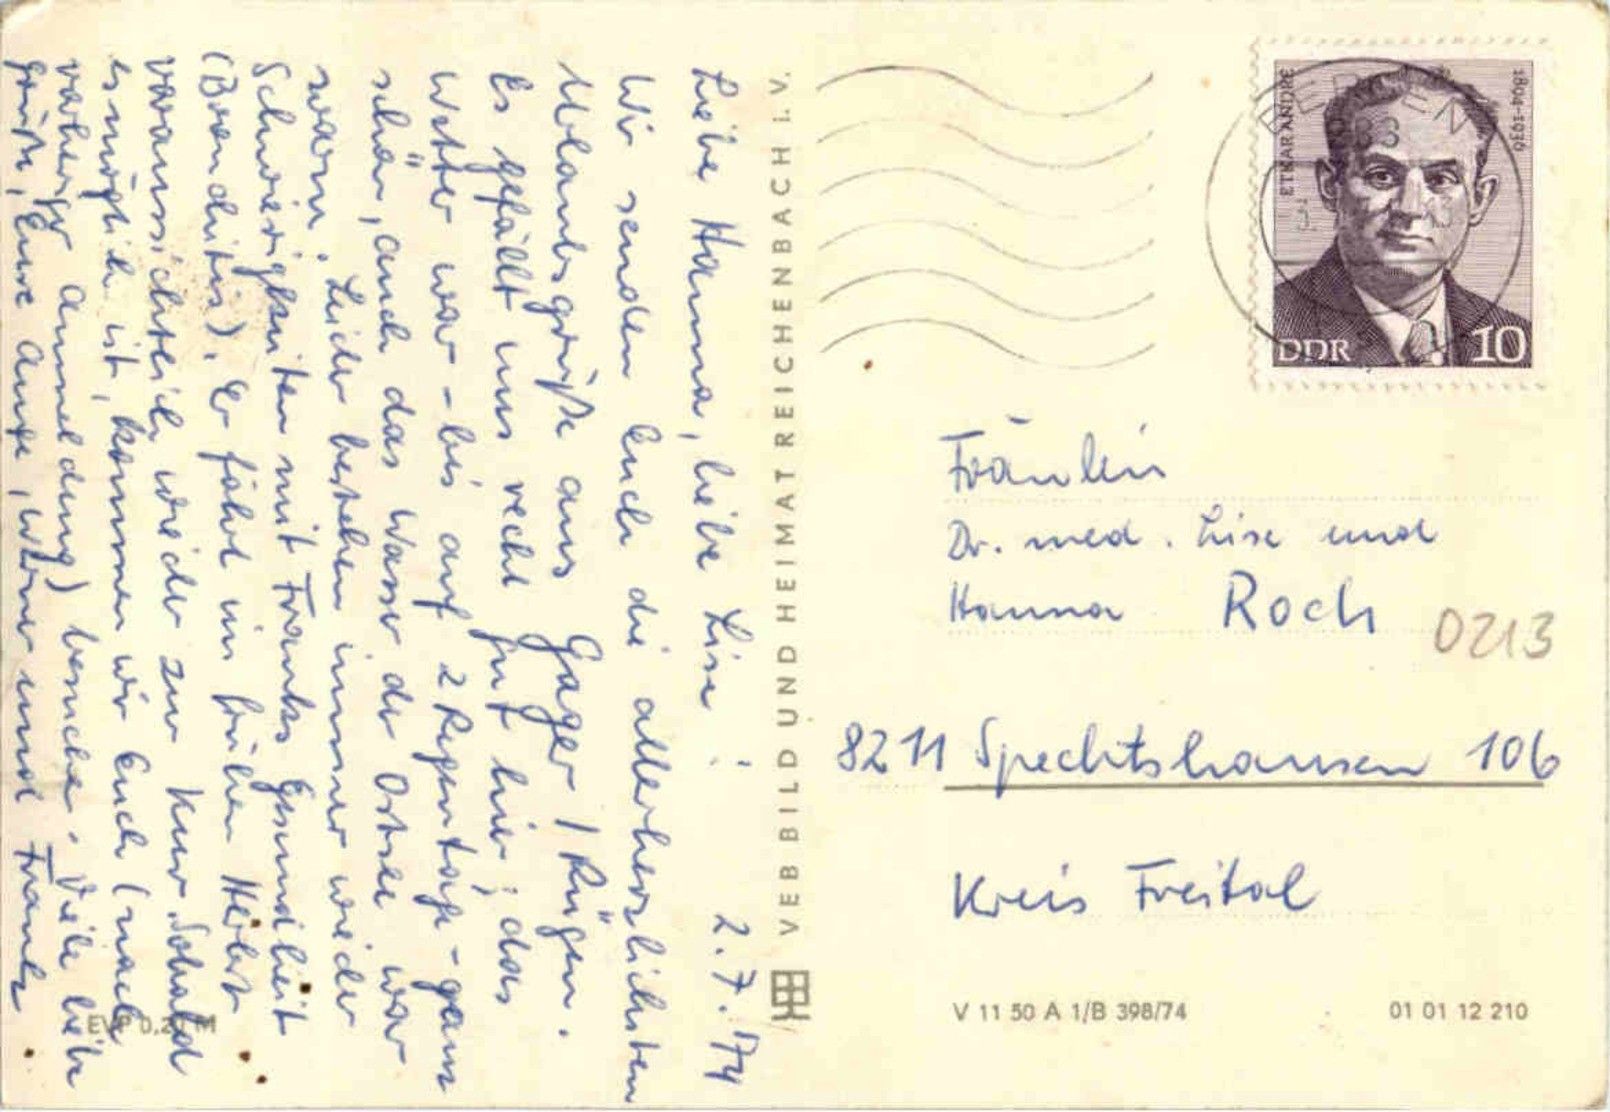 2.7.74
Liebe Hanna, liebe Lise!
Wir senden Euch die allerherzlichsten
Urlaubsgrüße aus Gager / Rügen.
Es gefällt uns recht gut hier; das
Wetter war - bis auf 2 Regentage - ganz
schön, auch das Wasser der Ostsee war
warm. Leider bestehen immer wieder
Schwierigkeiten mit Franks Gesundheit
(Bronchitis). Er fährt im frühen Herbst
voraussichtlich wieder zur Kur. Sobald
es möglich ist, kommen wir Euch (nach
vorheriger Anmeldung) besuchen. Viele liebe
Grüße, Eure Anne, Werner und Frank
EVP 0,20 M
VEB BILD UND HEIMAT REICHENBACH i. V.
ETKAR ANDRÉ
1894-1936
DDR 10
Fräulein
Dr. med. Lise und
Hanna Roch
0213
8211 Spechtshausen 106
Kreis Freital
V 11 50 A 1/B 398/74
01 01 12 210